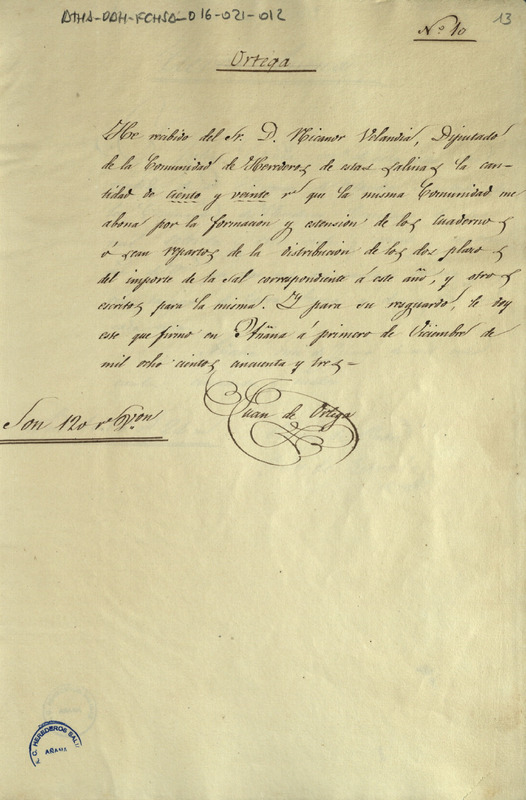 ATHA-DAH-FCHSA-016-021-012
Nº 10
13
Ortega
He recibido del Sr. D. Nicanor Velandia, Diputado
de la Comunidad de Herederos de estas Salinas la can-
tidad de ciento y veinte rs que la misma Comunidad me
abona por la formacion y estension de los cuadernos
ó sean repartos de la distribucion de los dos plazos
del importe de la sal correspondiente á este año, y otros
escritos para la misma. Y para su resguardo, le doy
este que firmo en Añana á primero de Diciembre de
mil ocho cientos cincuenta y tres=
Juan de Ortega
Son 120 rs Von
HEREDEROS SALI
AÑANA